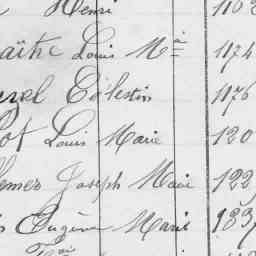 Henri 1162
aître Louis Mª 1174
uzel Célestin 1176
ot Louis Marie 120
Joseph Marie 122
Eugène Marie 183